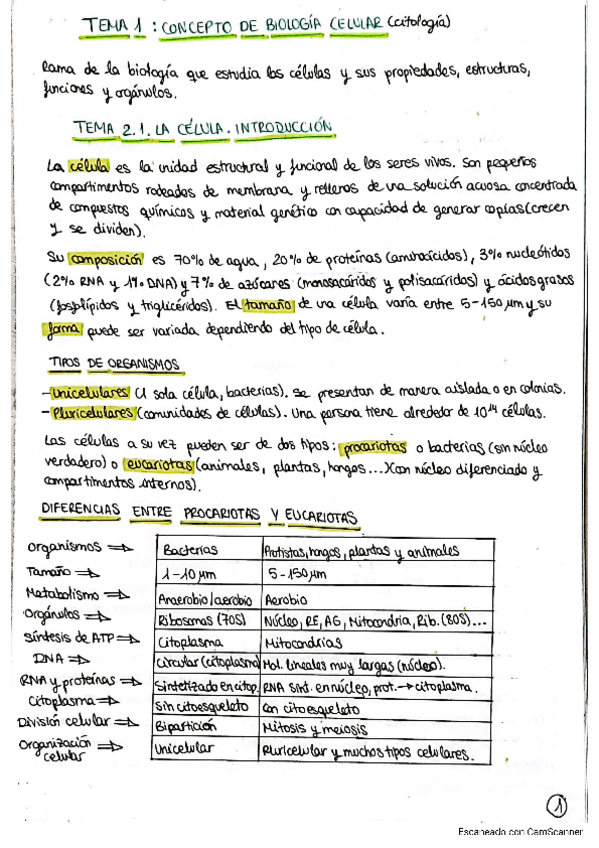 TEMA 1 : CONCEPTO DE BIOLOGÍA CELULAR (citología)
Rama de la biología que estudia las células y sus propiedades, estructuras,
funciones y orgánulos.
TEMA 2.1. LA CÉLULA. INTRODUCCIÓN
La célula es la unidad estructural y funcional de los seres vivos. Son pequeños
compartimentos rodeados de membrana y rellenos de una solución acuosa concentrada
de compuestos químicos y material genético con capacidad de generar copias (crecen
y se dividen).
Su composición es 70% de agua, 20% de proteínas (aminoácidos), 3% nucleótidos
(2% RNA y 1% DNA) y 7% de azúcares (monosacáridos y polisacáridos) y ácidos grasos
(fosfolípidos y triglicéridos). El tamaño de una célula varía entre 5-150 µm y su
forma puede ser variada dependiendo del tipo de célula.
TIPOS DE ORGANISMOS
- Unicelulares (1 sola célula, bacterias). Se presentan de manera aislada o en colonias.
- Pluricelulares (comunidades de células). Una persona tiene alrededor de 10¹⁴ células.
Las células a su vez pueden ser de dos tipos: procariotas o bacterias (sin núcleo
verdadero) o eucariotas (animales, plantas, hongos...) (con núcleo diferenciado y
compartimentos internos).
DIFERENCIAS ENTRE PROCARIOTAS Y EUCARIOTAS
Organismos ⇒ Bacterias Protistas, hongos, plantas y animales
Tamaño ⇒ 1-10 µm 5-150 µm
Metabolismo ⇒ Anaerobio/aerobio Aerobio
Orgánulos ⇒ Ribosomas (70S) Núcleo, RE, AG, Mitocondria, Rib. (80S)...
Síntesis de ATP ⇒ Citoplasma Mitocondrias
DNA ⇒ Circular (citoplasma) Mol. lineales muy largas (núcleo).
RNA y proteínas ⇒ Sintetizado en citop. RNA sint. en núcleo, prot. → citoplasma.
Citoplasma ⇒ Sin citoesqueleto Con citoesqueleto
División celular ⇒ Bipartición Mitosis y meiosis
Organización celular ⇒ Unicelular Pluricelular y muchos tipos celulares.
1
Escaneado con CamScanner